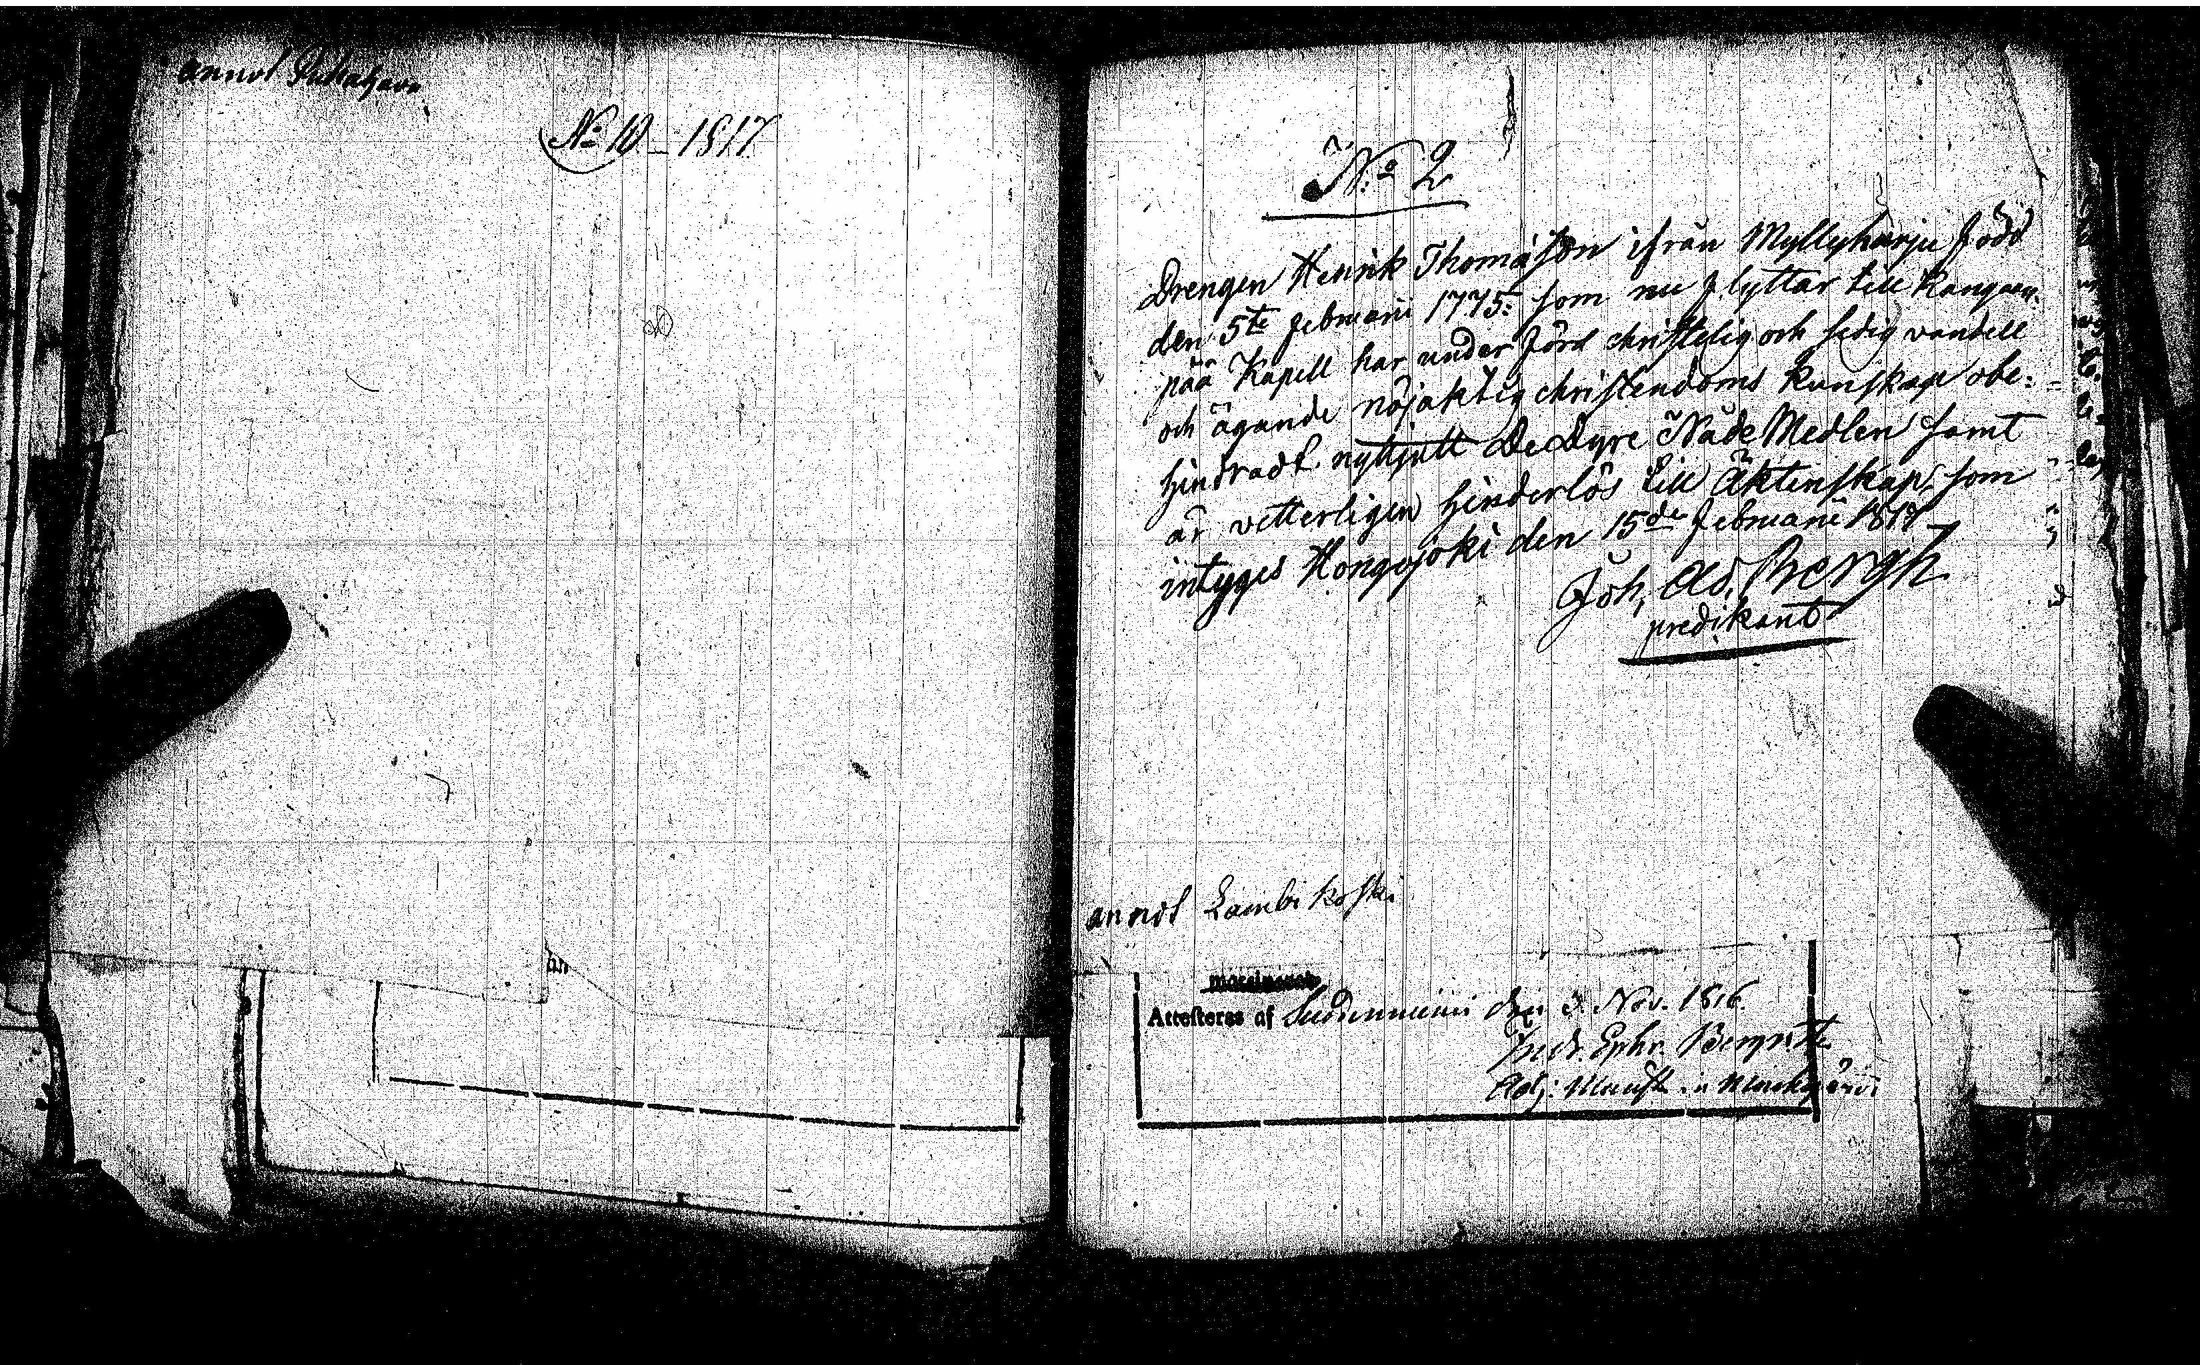 annot
No 10 – 1817
No 2
Drengen Henrik Thomasson ifrån Myllyharju född
den 5te februarii 1775: som nu flyttar till Kangaan-
pää Kapell har under förd christelig och sedig vandell
och ägande nöjaktig christendoms kunskap obe:
hindradt nyttjatt De Dyre Nåde Medlen samt
är vetterligen hinderlös till Äktenskap, som
intyges Hongojoki den 15de februarii 1817
Joh, Ad, Bergh
predikant
annot Lambikoski
Attesteras af den 3 Nov. 1816.
Ephr.
Adj: